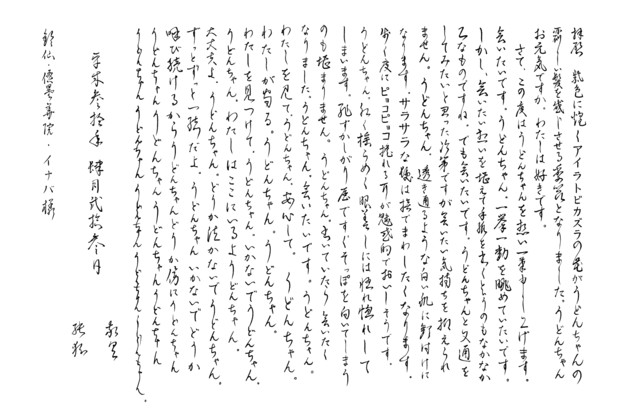 拝啓 乾色に恍くアイラトビカズラの花がうどんちゃんの
麗しい髪を感じさせる季節となりました、うどんちゃん
お元気ですか。わたしは好きです。
さて、この度はうどんちゃんを熱い一筆申し上げます。
会いたいです。うどんちゃん、一挙一動を眺めていたいです。
しかし、会いたい想いを堪えて手紙を書くというのもなかなか
乙なものですね。でも会いたいです。うどんちゃんと文通を
してみたいと思った次第ですが会いたい気持ちを抑えられ
ません。うどんちゃん、透き通るような白い肌に釘付けに
なります。サラサラな髪は撫でまわしたくなります。
歩く度にピョコピョコ揺れる耳が魅惑的でおいしそうです。
うどんちゃん、紅く揺らめく眼差しには惚れ惚れして
しまいます。恥ずかしがり屋ですぐそっぽを向いてしまう
のも堪りません。うどんちゃん、書いていたら会いたく
なりました、うどんちゃん、会いたいです。うどんちゃん。
わたしを見て、うどんちゃん、安心して。うどんちゃん。
わたしが居る。うどんちゃん。うどんちゃん。
わたしを見つけて、うどんちゃん、いかないでうどんちゃん。
うどんちゃん、わたしはここにいるようどんちゃん。
大丈夫よ、うどんちゃん、どうか泣かないで、うどんちゃん。
ずっとずっと一緒だよ。うどんちゃんいかないでどうか
呼び続けるからうどんちゃんどうか傍にうどんちゃん
うどんちゃんうどんちゃんうどんちゃんうどんちゃん
うどんちゃんうどんちゃんうどんちゃんうどんちゃん。
平成参拾年 肆月弐拾参日
鈴仙・優曇華院・イナバ様